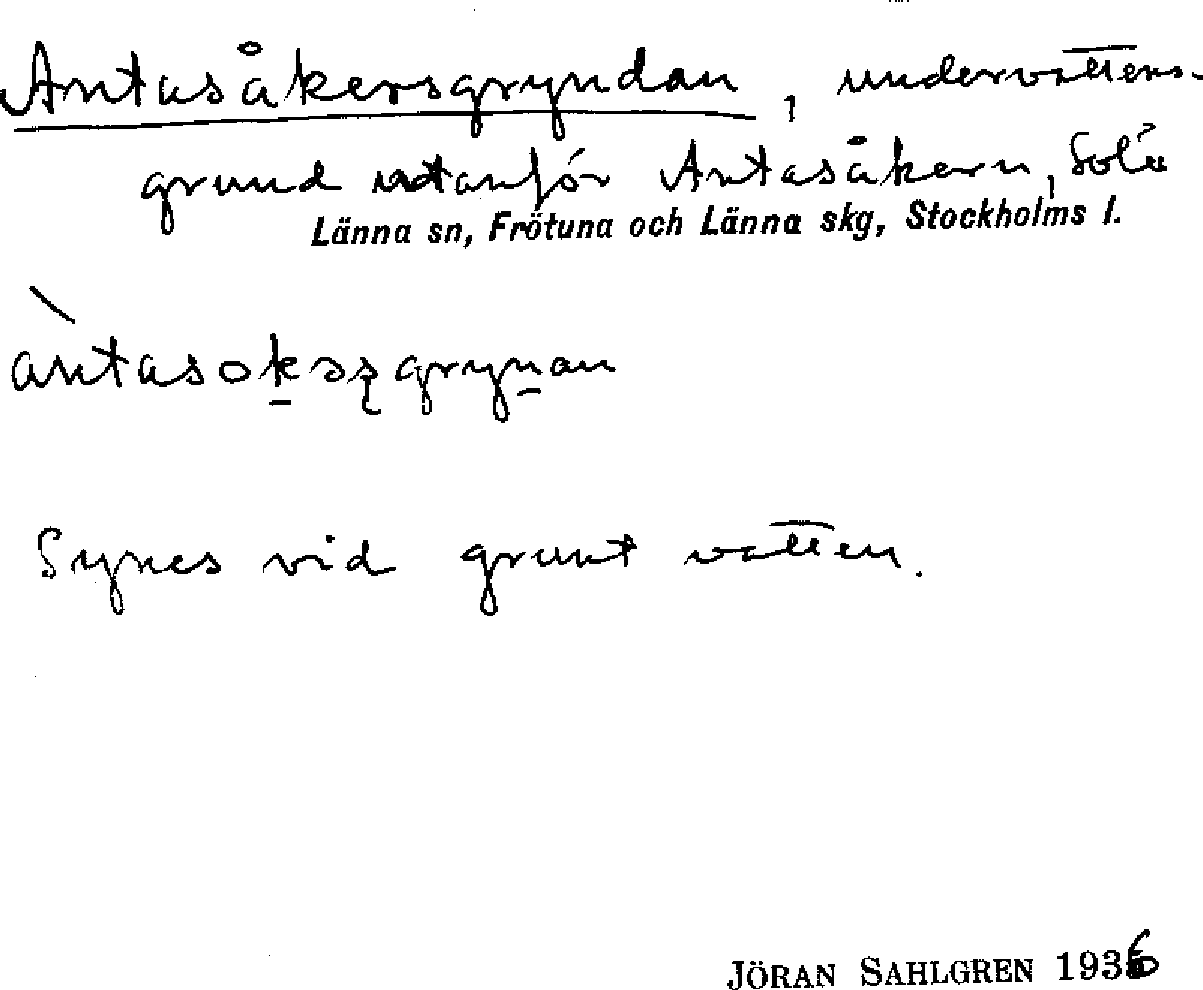 Antasåkersgryndan, undervattens-
grund utanför Antasåkern, Solö
Länna sn, Frötuna och Länna skg, Stockholms l.
àntasokssgrynan
Synes vid grunt vatten.
JÖRAN SAHLGREN 1936